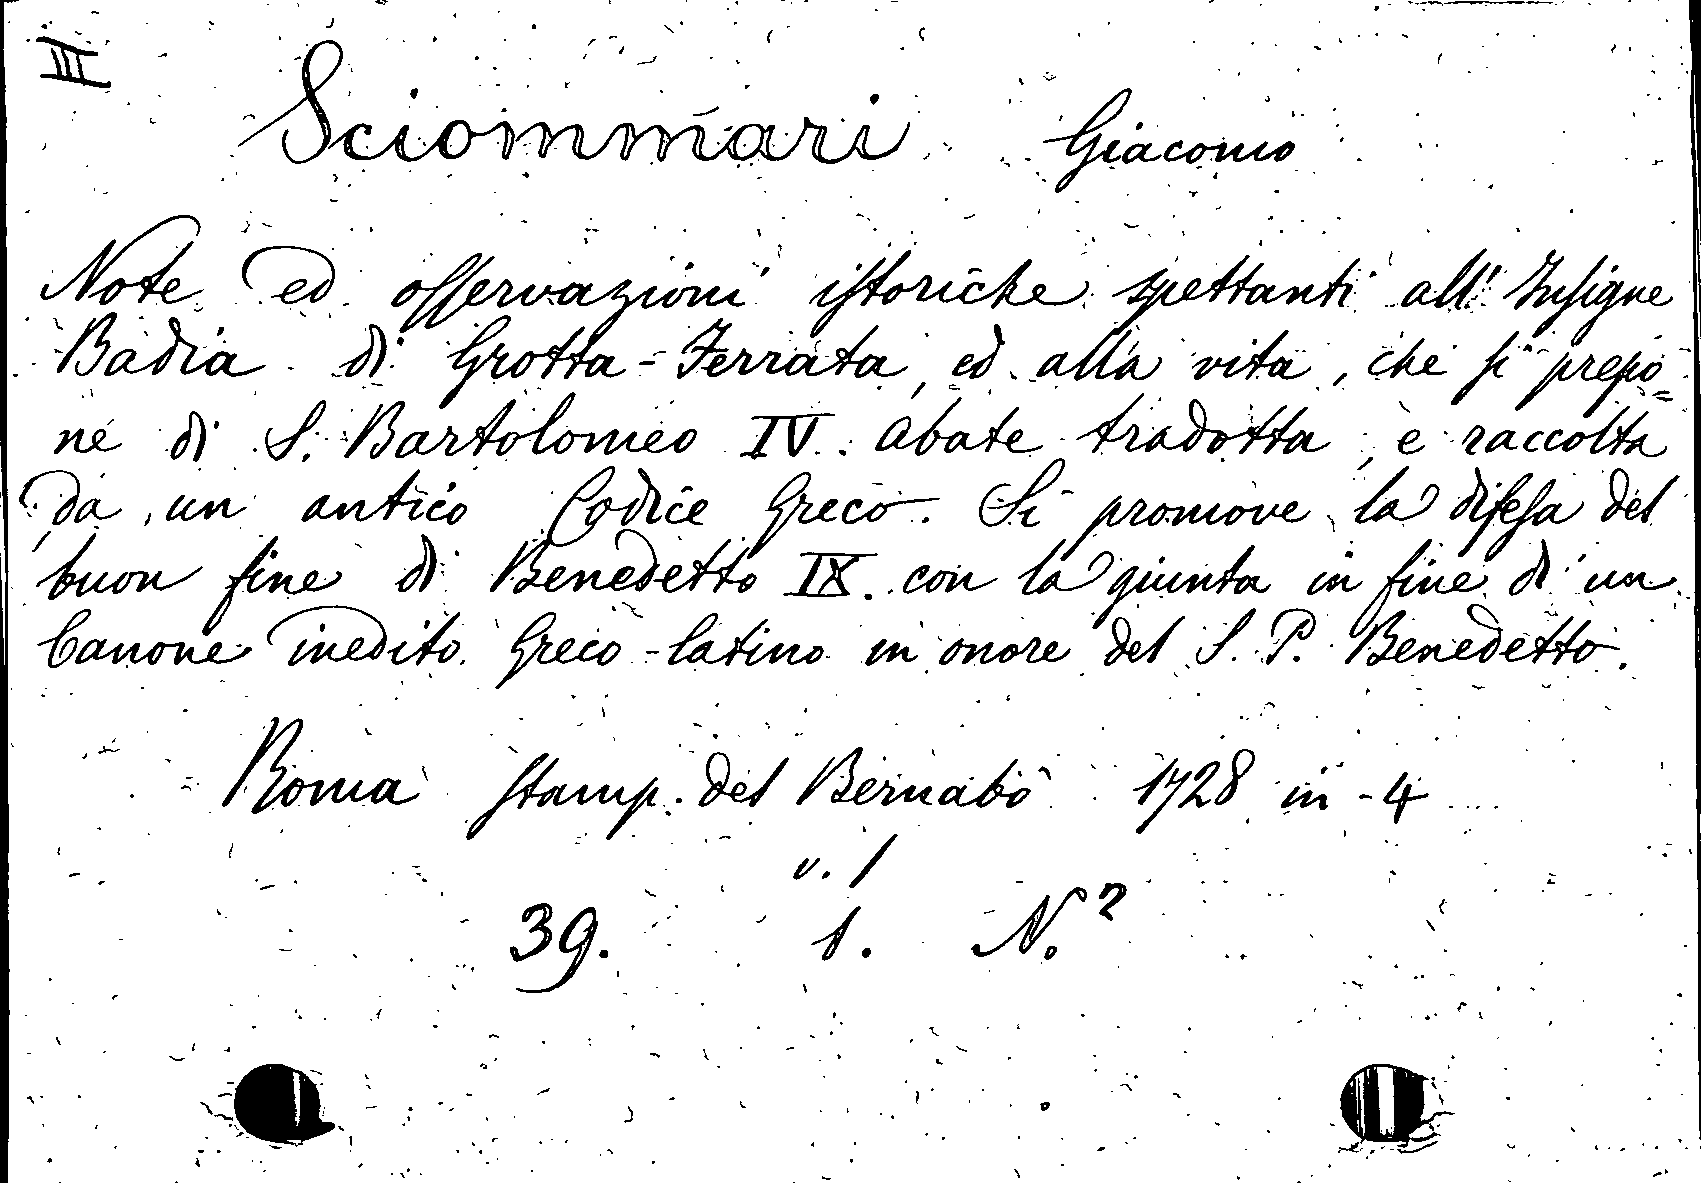 III
Sciommari Giacomo
Note ed osservazioni istoriche spettanti all' Insigne
Badia di Grotta-Ferrata, ed alla vita, che si prepo=
ne di S. Bartolomeo IV. Abate tradotta, e raccolta
da un antico Codice Greco. Si promove la difesa del
buon fine di Benedetto IX. con la giunta in fine di un
Canone inedito Greco-latino in onore del S. P. Benedetto.
Roma Stamp. del Bernabò 1728 in-4
v. 1
39. 1. N. 2